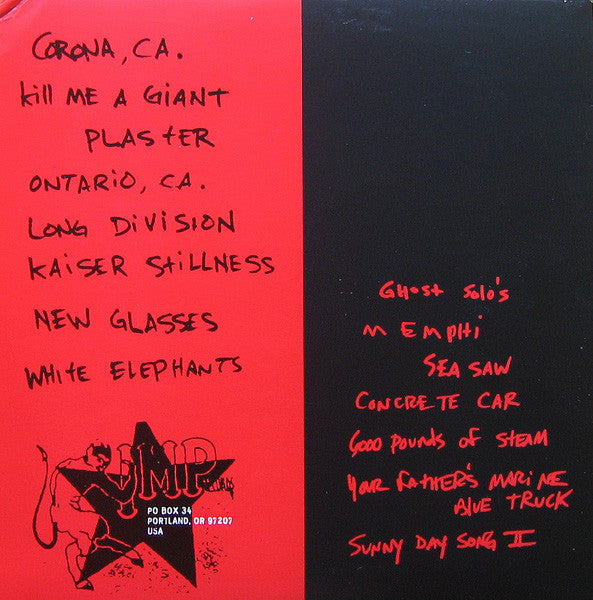 CORONA, CA.
kill ME A GIANT
PLASTER
ONTARIO, CA.
LONG DIVISION
KAISER STILLNESS
NEW GLASSES
WHITE ELEPHANTS
JMP
PO BOX 34
PORTLAND, OR 97207
USA
GHOST Solo's
MEMPHI
SEA SAW
CONCRETE CAR
6000 POUNDS OF STEAM
YOUR FATHER'S MARINE
BLUE TRUCK
SUNNY DAY SONG II